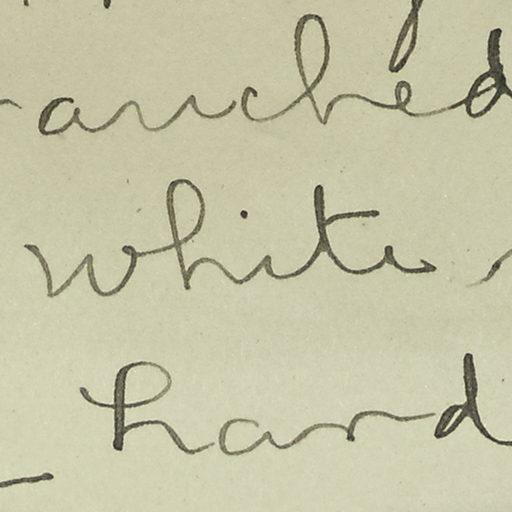 anched
white
hard